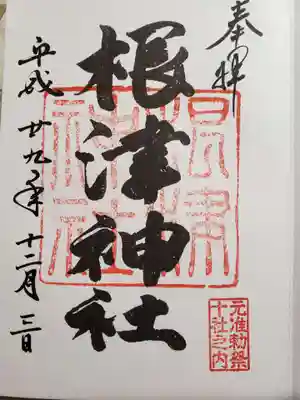 奉拝
根津神社
平成廿九年十二月三日
根津神社
元准勅祭
十社之内